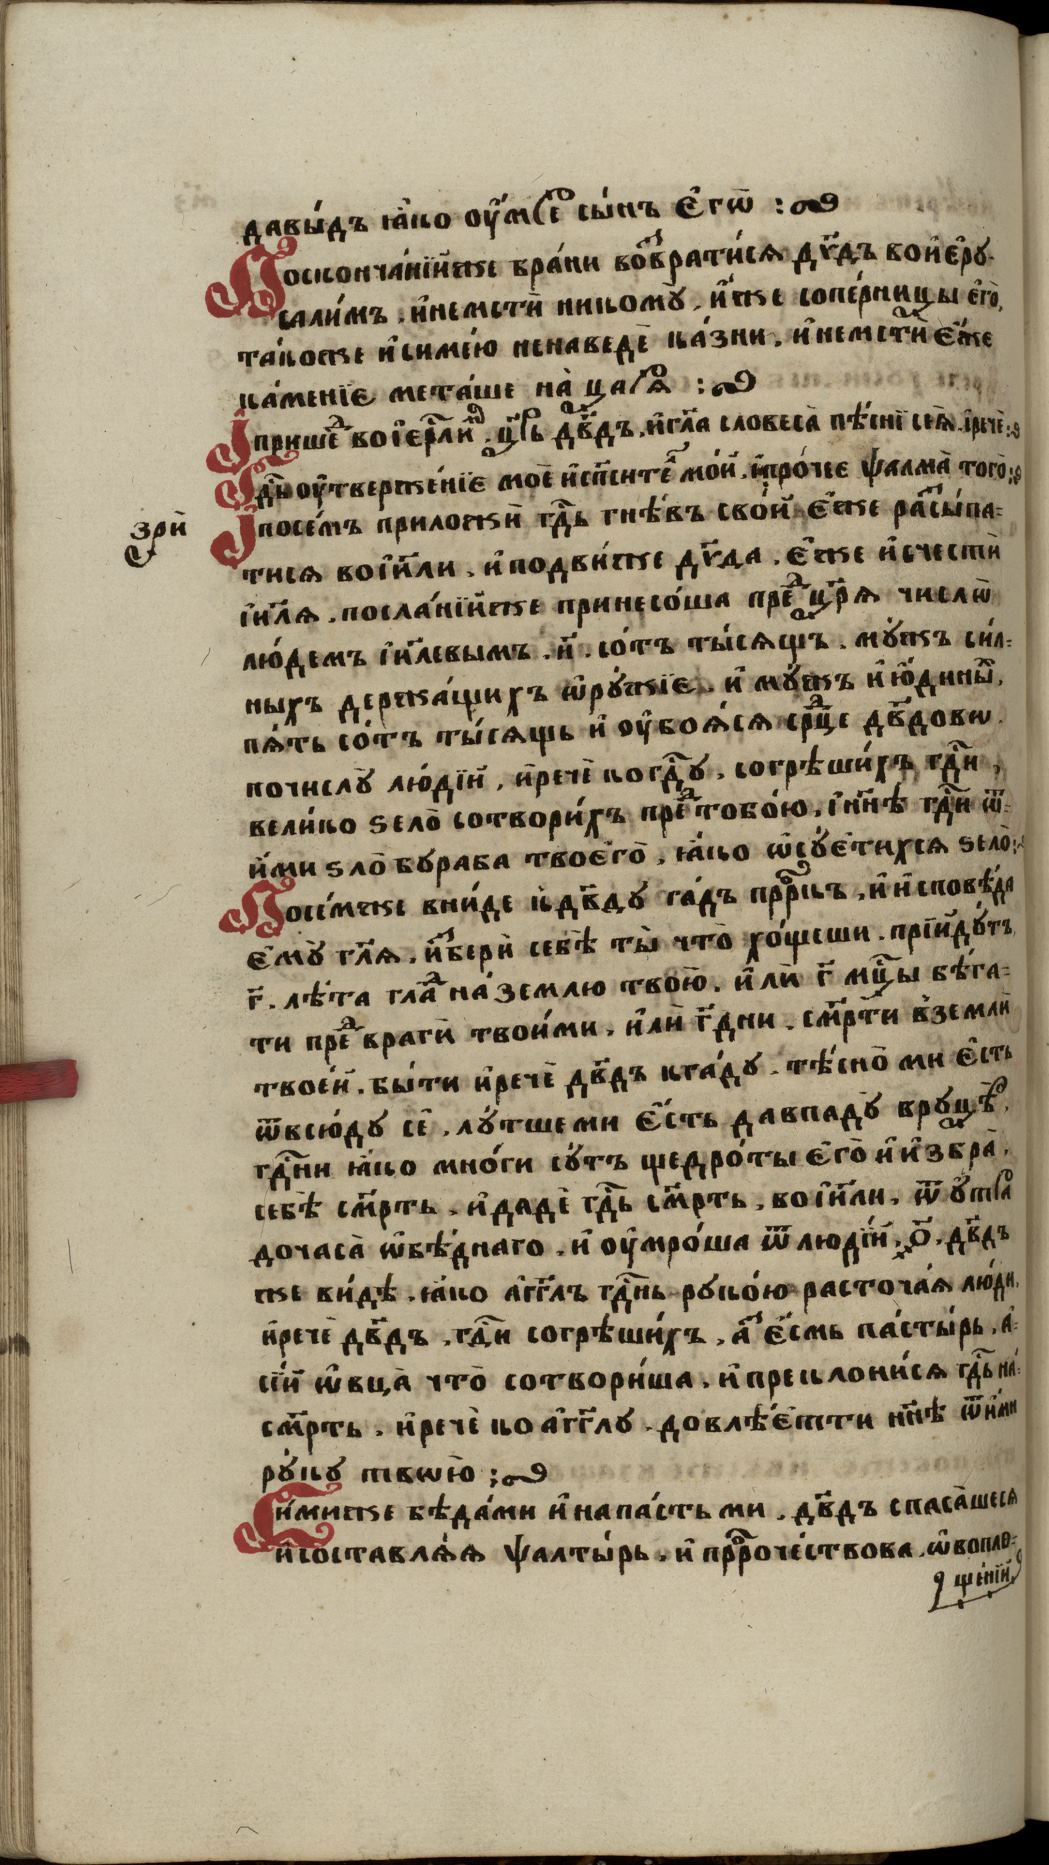 давы́дъ ꙗ҆́ко ᲂу҆́мре сы́нъ є҆гѡ̀ :
Посконча́нїиже бра́ни возврати́сѧ дв҃дъ вои҆є҆ру
сали́мъ . и҆немстѝ никомꙋ̀ . и҆́же сопе́рницы є҆гѡ̀,
та́коже и҆симе́ю ненаведѐ ка́зни . и҆немстѝ є҆́же
ка́менїе мета́ше на̀ царѧ :
І прише́д воі҆ер҃ли́м . цр҃ь дв҃дъ . и҆гл҃а словеса̀ пѣ́снї сеѧ̀ . і҆речѐ :
Гд҃и ᲂу҆тверже́нїе моѐ и҆сп҃ситель мо́й . и҆про́чее ѱалма̀ того̀ :
зрѝ
І посе́мъ приложѝ гд҃ь гнѣ́въ сво́й є҆́же разсы́па-
тисѧ воі҆и҃ли . и҆подви́же дв҃да . є҆́же и҆счестѝ
і҆и҃лѧ . посла́нїиже принесо́ша пред цр҃ѧ числѡ̀
лю́демъ і҆и҃левымъ . и҃ . со́тъ ты́сѧщъ . мꙋ́жъ си́л-
ныхъ держа́щихъ ѡ҆рꙋ́жїе . и҆ мꙋ́жъ и҆ю҆́диных .
пѧ́ть со́тъ ты́сѧщь и҆ ᲂу҆боѧ́сѧ срдце дв҃довѡ .
почислꙋ̀ люді́й , и҆речѐ когд҃ꙋ . согрѣши́хъ гд҃и ,
вели́ко ѕело̀ сотвори́хъ пред тобо́ю . і҆нн҃ѣ гд҃и ѿ-
и҆ми ѕло̀бꙋраба твоєго̀ , ꙗ҆́ко ѡ҆сꙋ́єтихсѧ ѕело̀ :
Посе́мже вни́де кдв҃дꙋ га́дъ пррⷪ҇къ , и҆ и҆сповѣ́да
є҆мꙋ̀ гл҃ѧ . и҆збери̇̀ себѣ̀ ты̀ что̀ хо́щеши . прїи́дꙋтъ
г҃ . лѣ́та глад на́ землю твою̀ . и҆лѝ г҃ мцⷭ҇ы бѣ́га-
ти пред врагѝ твои́ми . и҆лѝ г҃ дни . см҃рти в҆землѝ
твое́й . бы́ти и҆речѐ дв҃дъ кга́дꙋ . тѣ́сно̀ ми є҆́сть
ѿвсю́дꙋ сѐ . лꙋ́тшеми є҆́сть давпадꙋ̀ врꙋцѣ .
гд҃ни ꙗ҆́ко мно́ги сꙋ́тъ щедро́ты є҆го̀ и҆ и҆збра̀ .
себѣ̀ см҃рть . и҆дадѐ гд҃ь см҃рть . воі҆и҃ли . ѿ ᲂу҆тра
дочаса̀ ѡ҆бѣ́днаго . и҆ ᲂу҆мро́ша ѿ люді́й . о҃ . дв҃дъ
же ви́дѣ . ꙗ҆́ко а҆гг҃лъ гд҃нь рꙋко́ю расточа́ѧ лю́ди .
и҆речѐ дв҃дъ . гд҃и согрѣши́хъ . а҆з є҆́смь па́сты́рь . а҆-
сі́и ѡ҆вца̀ что̀ сотвори́ша . и҆преклони́сѧ гд҃ь на́-
см҃рть . и҆речѐ коа҆гг҃лꙋ . довлѣ́єтти нн҃ѣ ѿи҆ми
рꙋ́кꙋ твѡю̀ ;
Си́миже бѣда́ми и҆напа́сть ми . дв҃дъ спаса̀шесѧ
и҆составлѧ́ѧ ѱалты́рь . и҆ прⷪ҇роче́ствова . ѡ҆вопло-
ще́нїи